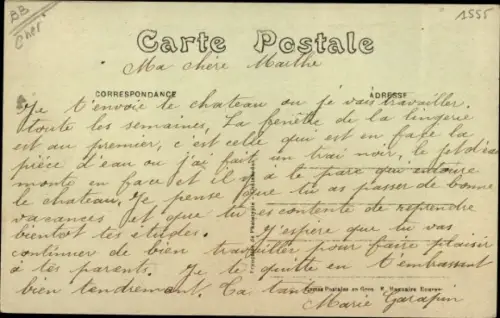 BB
Cher
1555
Carte Postale
Ma chère Marthe
CORRESPONDANCE
ADRESSE
Je t'envoie le chateau ou je vais travailler.
toute les semaines, La fenêtre de la lingerie
est au premier, c'est celle qui est en face la
pièce d'eau ou j'ai fait un trai noir, le jet d'eau
monte en face et il y a le parc qui entoure
le chateau. Je pense que tu as passer de bonne
vacances et que tu es contente de reprendre
bientot tes études. J'espère que tu vas
continuer de bien travailler pour faire plaisir
à tes parents. Je te quitte en t'embrassant
bien tendrement. Ta tante
Marie
Cartes Postales en Gros